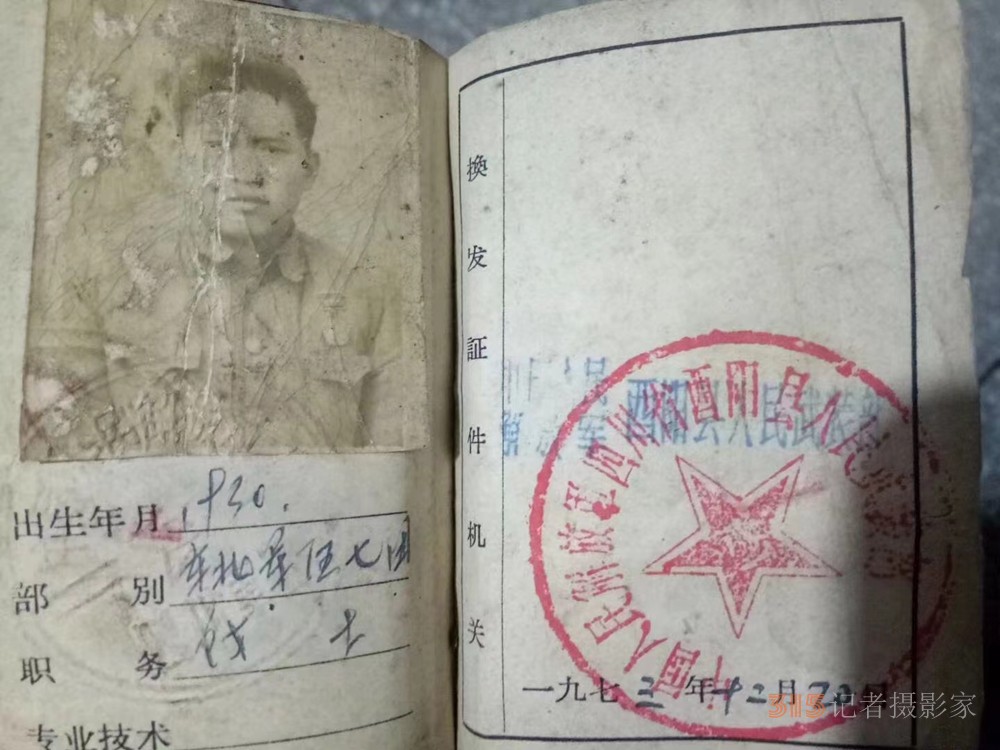 出生年月 1930.
部别 东北军区七团
职务 战士
专业技术
换发証件机关
中国人民
解放军 酉阳县人民武装部
中国人民解放军四川省酉阳县人民武装部
一九七三年十二月30日
315记者摄影家